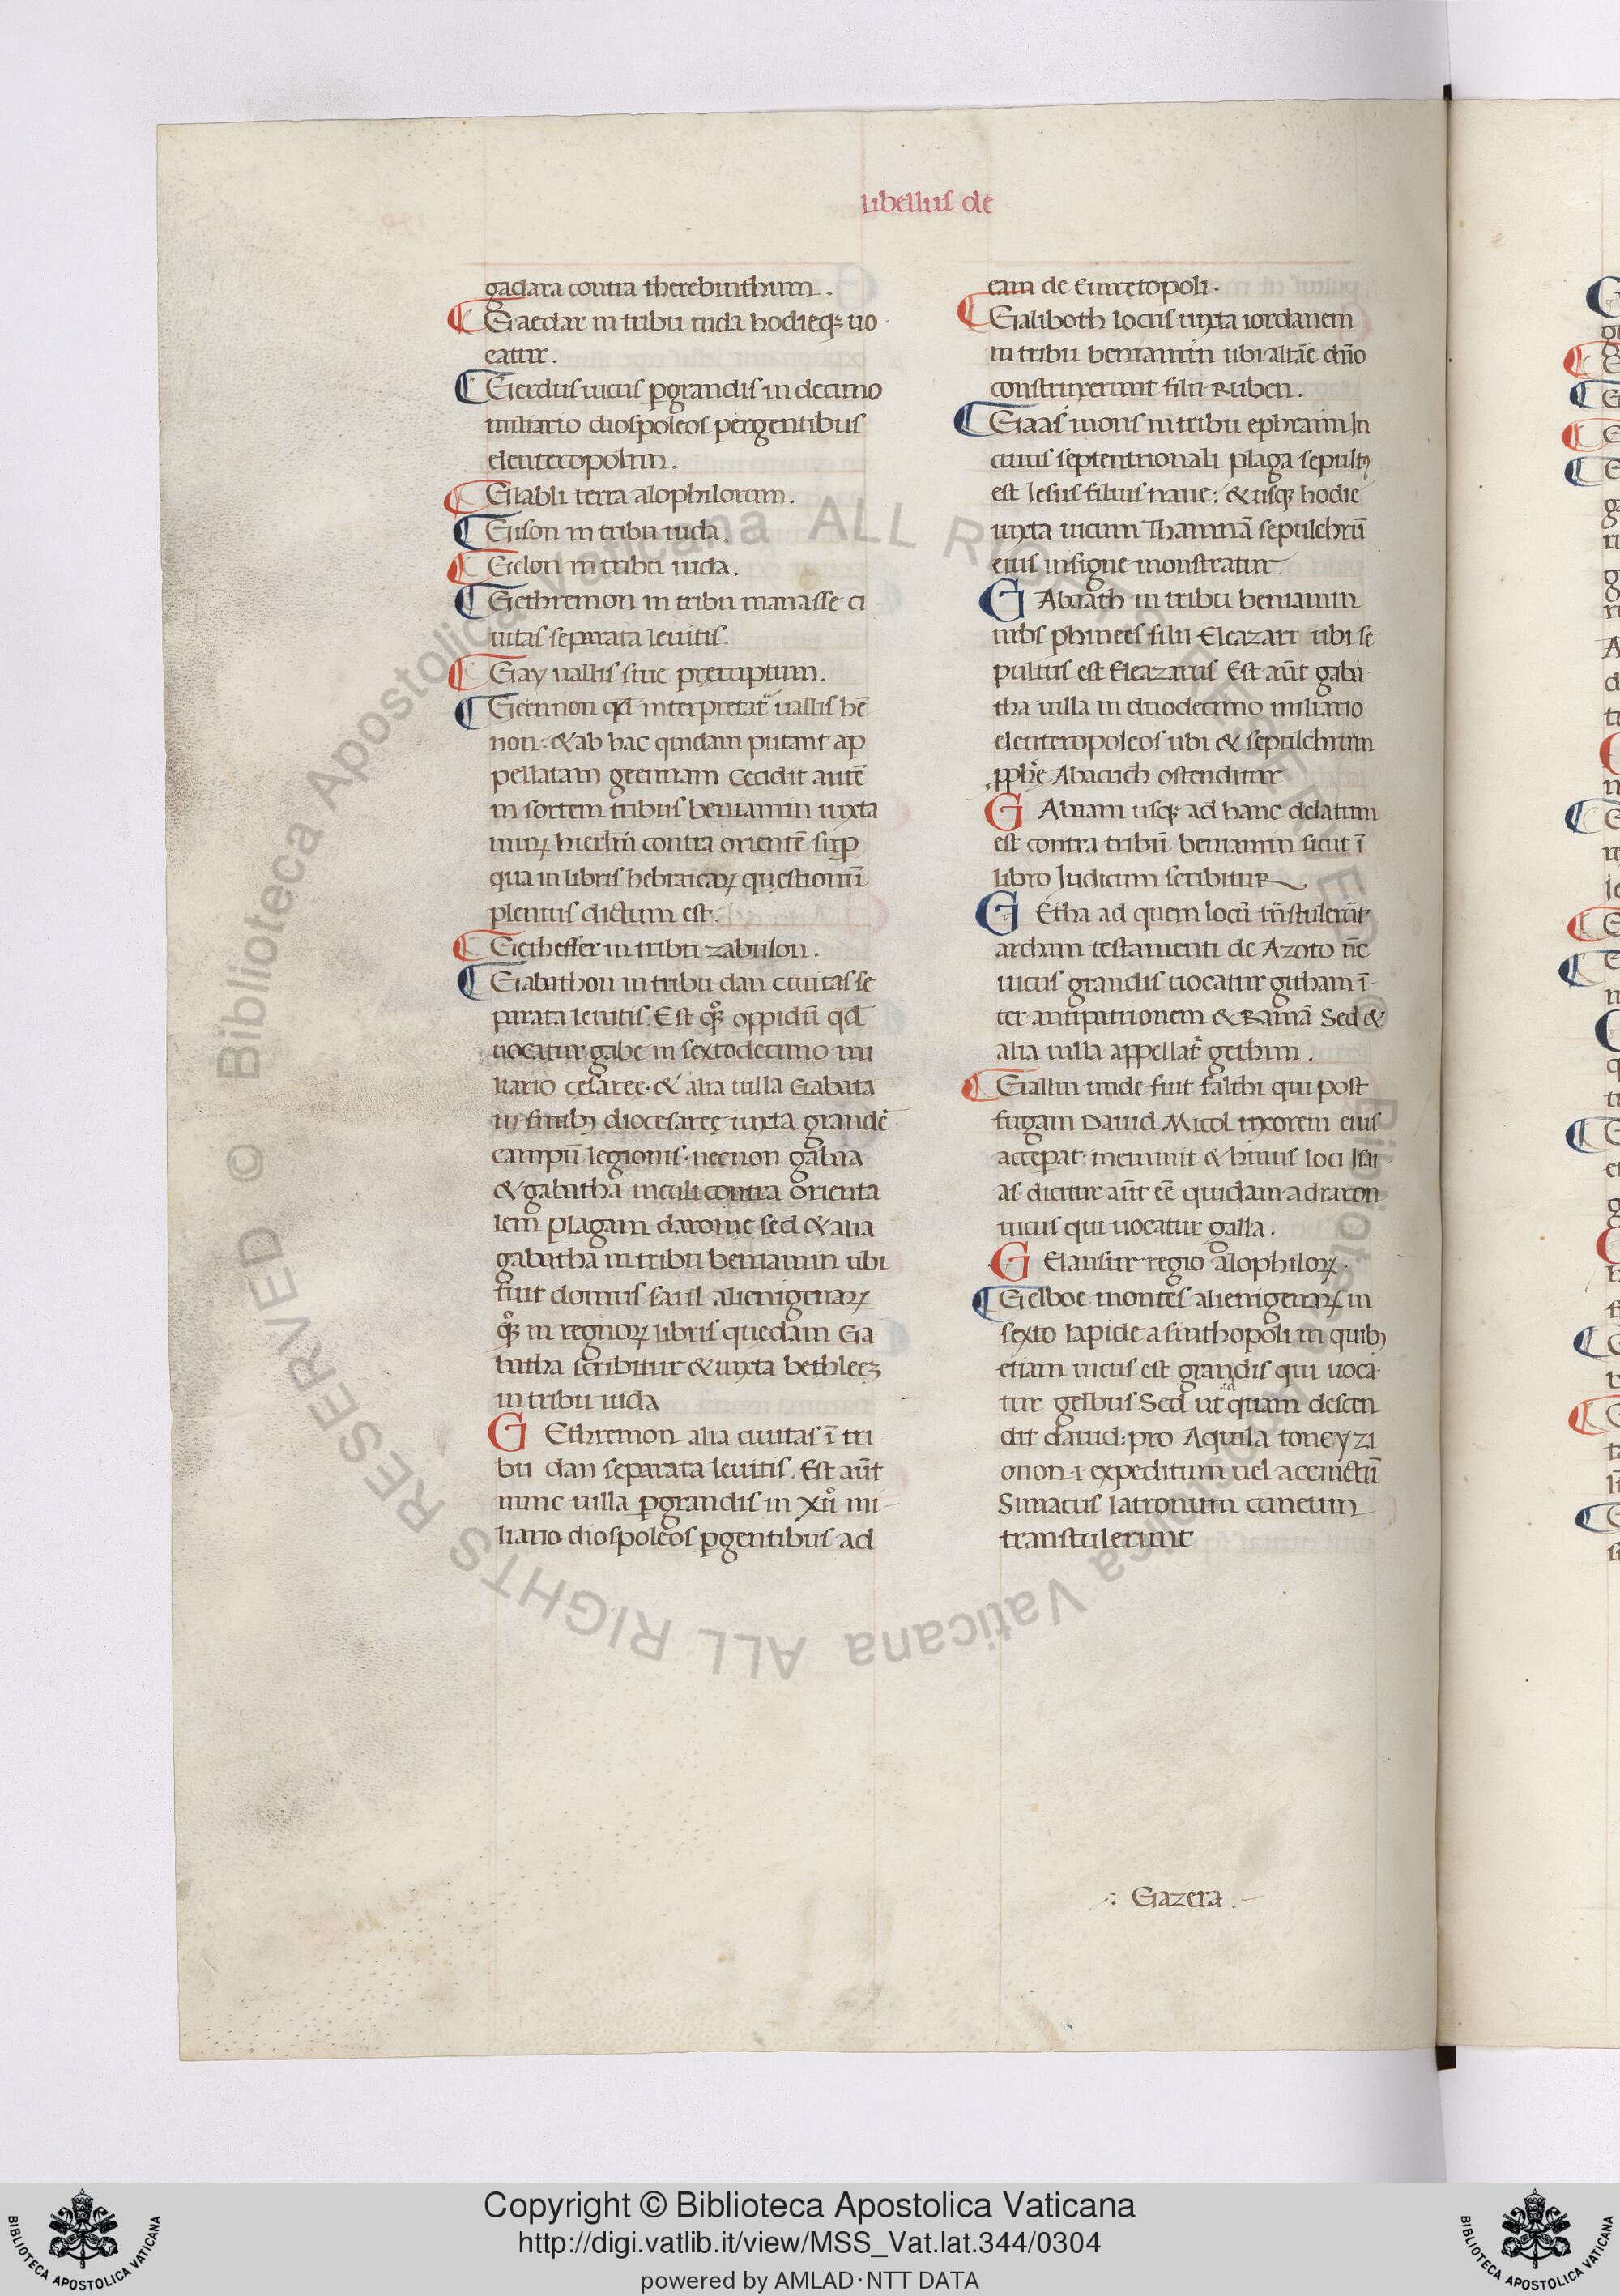 libellus de
gadara contra therebinthum.
Gaedar in tribu iuda hodieqꝫ uo
catur.
Gerdus uicus ꝑgrandis in decimo
miliario diospoleos pergentibus
eleuteropolim.
Glabli terra alophilorum.
Gison in tribu iuda.
Gelon in tribu iuda.
Gethremon in tribu manasse ci
uitas separata leuitis.
Gay uallis siue pręruptum.
Geennon qđ interpretat᷑ uallis hē
non: & ab hac quidam putant ap
pellatam geennam Cecidit autē
in sortem tribus beniamin iuxta
muꝝ hierlm̄ contra orientē sup
qua in libris hebraicaꝝ questionū
plenius dictum est.
Getheffer in tribu zabulon.
Gabathon in tribu dan ciuitas se
parata leuitis. Est qͦꝫ oppidū qđ
uocatur gabe in sextodecimo mi
liario cęsareę. & alia uilla Gabata
in finibꝰ diocesareę iuxta grandē
campū legionis. necnon gabaa
& gabatha uiculi contra orienta
lem plagam darome sed & alia
gabatha in tribu beniamin ubi
fuit domus saul alienigenaꝝ
qͦꝫ in regnoꝝ libris quedam Ga
batha scribitur & iuxta bethleeꝫ
in tribu iuda
GEthremon alia ciuitas ī tri
bu dan separata leuitis. Est aūt
nunc uilla ꝑgrandis in xıı͗ mi-
liario diospoleos ꝑgentibus ad
eam de
Galiboth locus iuxta iordanem
in tribu beniamin ubi altār̄e dn̄o
construxerunt filii Ruben.
Gaas mons in tribu ephraim In
cuius septentrionali plaga sepultꝰ
est Iesus filius naue: & usqꝫ hodie
iuxta uicum Thamnā sepulchrū
eius insigne monstratur.
GAbaath in tribu beniamin
urbs phinees filii Eleazari ubi se
pultus est Eleazarus Est aūt gaba
tha uilla in duodecimo miliario
eleuteropoleos ubi & sepulchrum
ꝓph̄e Abacuch ostenditur
GAbaam usqꝫ ad hanc delatum
est contra tribū beniamin sicut ī
libro Iudicum scribitur
GEtha ad quem locū tn̄stulerūt
archam testamenti de Azoto nc̄
uicus grandis uocatur githam ī-
ter antipatrionem & Ramā Sed &
alia uilla appellat᷑ gethim.
Gallin unde fuit falthi qui post
fugam Dauid Micol uxorem eius
accepat: meminit & huius loci Isai
as. dicitur aūt ēe quidam adraron
uicus qui uocatur galla.
GElansur regio alophiloꝝ.
Gelboe montes alienigenaꝝ in
sexto lapide a sinthopoli in quibꝰ
etiam uicus est grandis qui uoca
tur gelbus Sed ut quam descen
dit dauid: pro Aquila toneyzi
onon .i. expeditum uel accinctū
Simacus latronum cuneum
transtulerunt
Gazera.
Copyright © Biblioteca Apostolica Vaticana
http://digi.vatlib.it/view/MSS_Vat.lat.344/0304
powered by AMLAD·NTT DATA
BIBLIOTECA APOSTOLICA VATICANA
BIBLIOTECA APOSTOLICA VATICANA
© Biblioteca Apostolica Vaticana ALL RIGHTS RESERVED
© Biblioteca Apostolica Vaticana ALL RIGHTS RESERVED